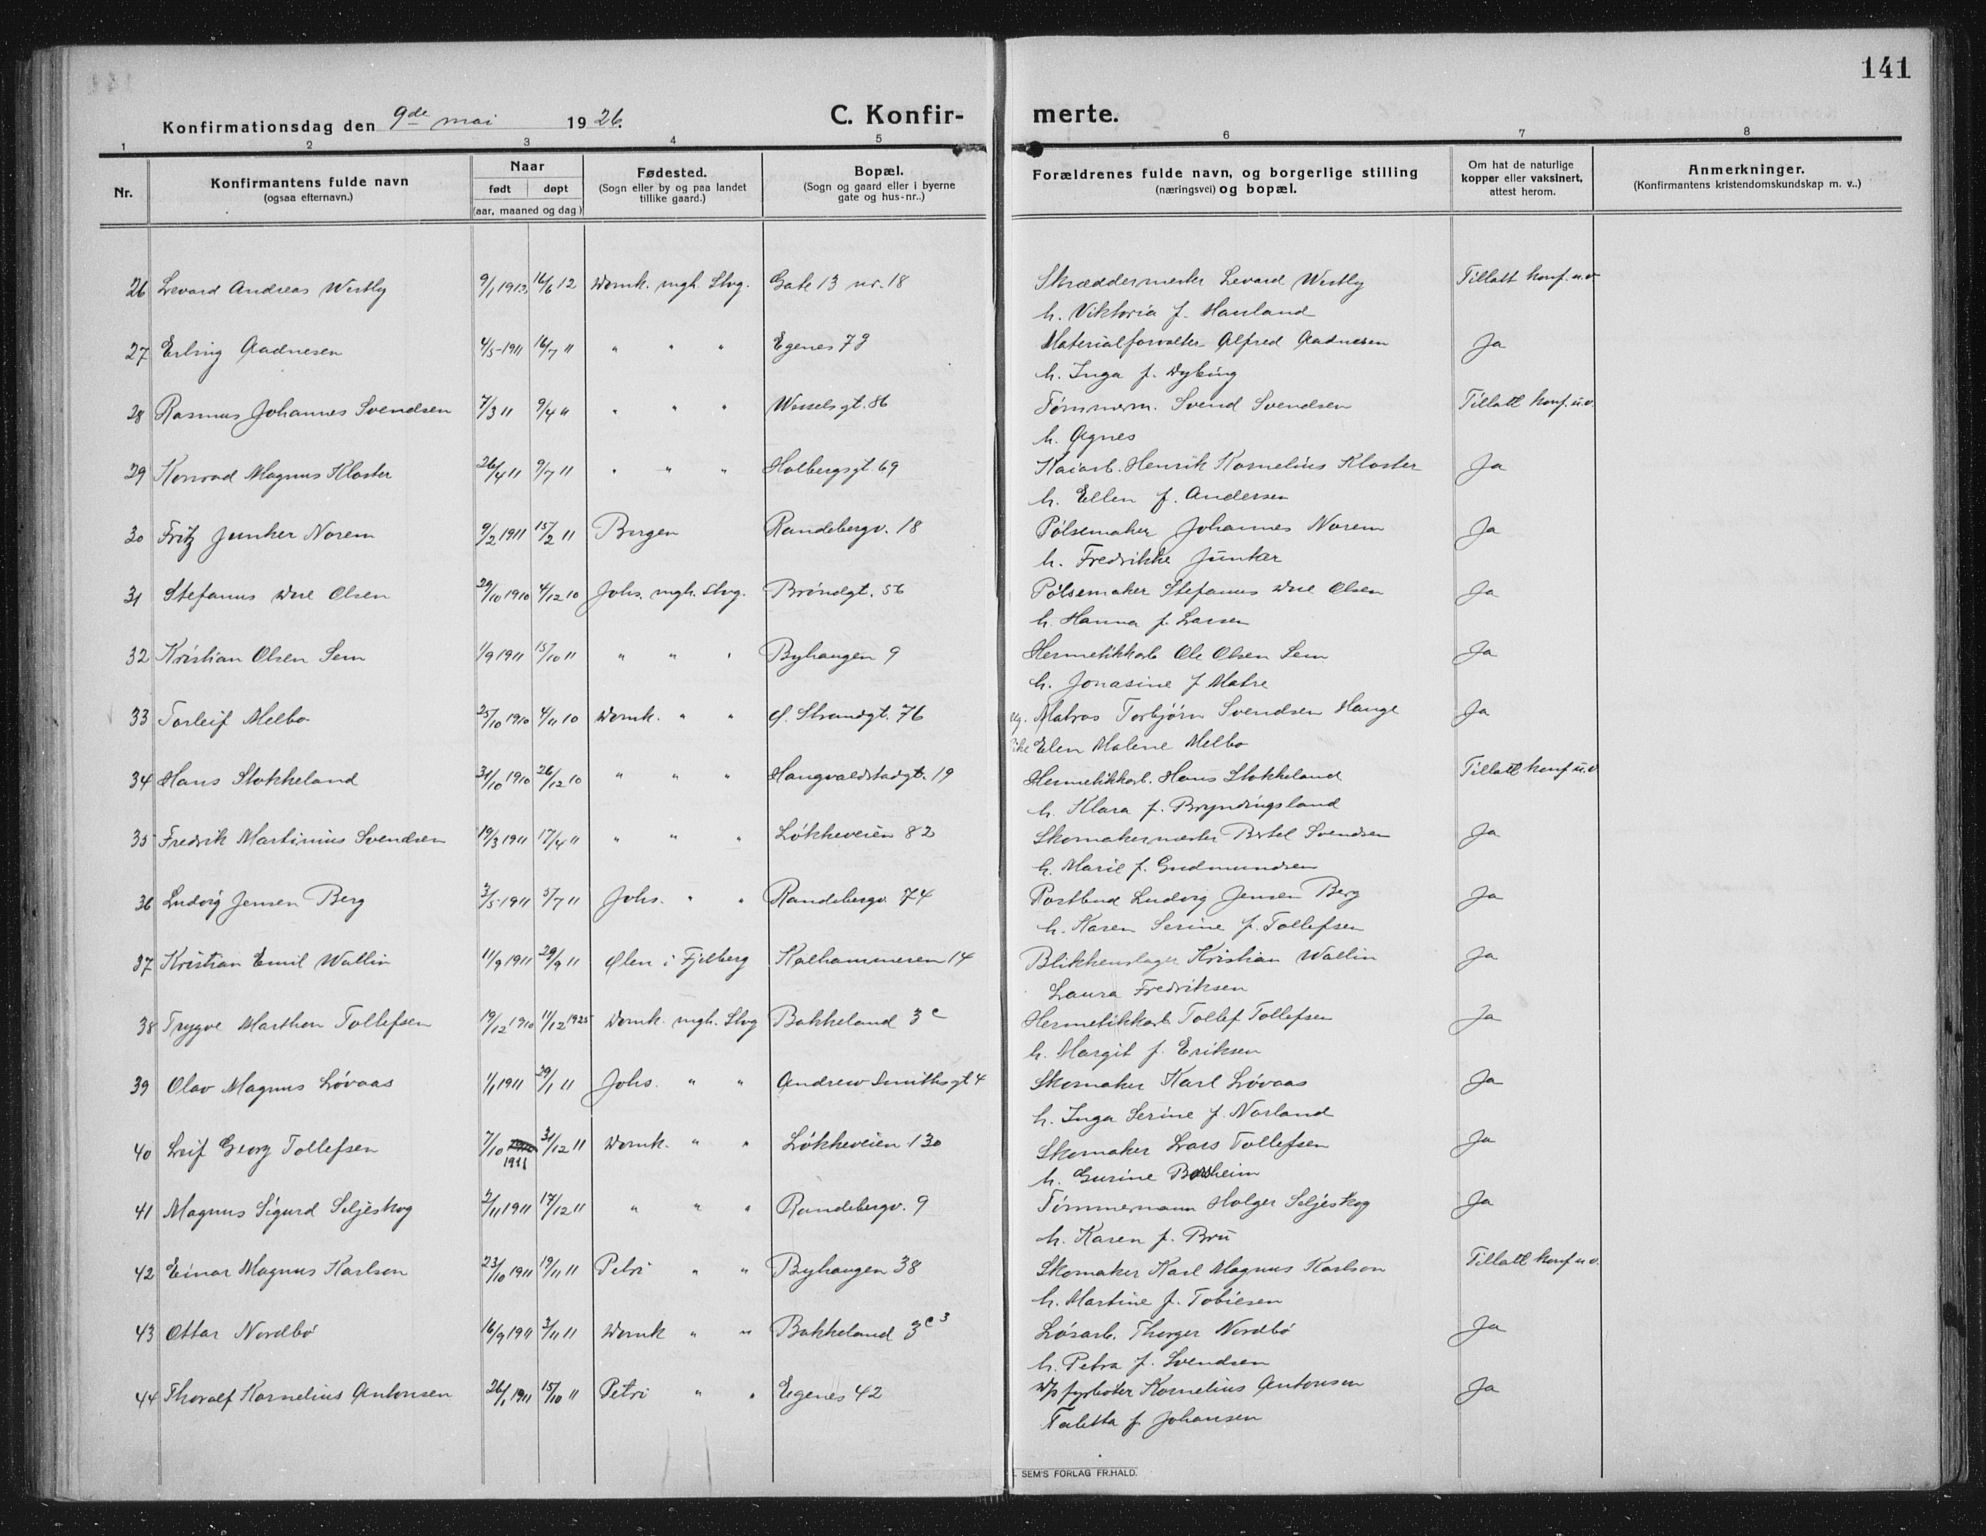 141
Konfirmationsdag den 9de mai 1926.
C. Konfir-
merte.
1 2 3 4 5 6 7 8
Nr.
Konfirmantens fulde navn
(ogsaa efternavn.)
Naar
født døpt
(aar, maaned og dag)
Fødested.
(Sogn eller by og paa landet
tillike gaard.)
Bopæl.
(Sogn og gaard eller i byerne
gate og hus-nr..)
Forældrenes fulde navn, og borgerlige stilling
(næringsvei) og bopæl.
Om hat de naturlige
kopper eller vaksinert,
attest herom.
Anmerkninger.
(Konfirmantens kristendomskundskap m. v..)
26 Levard Andreas Westly 9/1 1912 16/6 12 Domk. mgh. Stvg. Gate 13 nr. 18 Skræddermester Levard Westly Tillatt konf. u.v
h. Viktoria f. Hauland
27 Erling Aadnesen 4/5-1911 16/7 11 " " " Egenes 79 Materialforvalter Alfred Aadnesen Ja
h. Inga f. Dybing
28 Rasmus Johannes Svendsen 7/3 11 9/4 " " " " Wesselsgt. 86 Tømmerm. Svend Svendsen Tillatt konf. u.v.
h. Agnes
29 Konrad Magnus Kloster 26/4 11 9/7 11 " " " Holbergsgt. 69 Kaiarb. Henrik Kornelius Kloster Ja
h. Ellen f. Andersen
30 Fritz Junker Norem 9/2 1911 15/2 11 Bergen Randebergv. 18 Pølsemaker Johannes Norem Ja
h. Fredrikke Junker
31 Stefanus Due Olsen 29/10 1910 4/12 10 Johs. mgh. Stvg. Brøndgt. 56 Pølsemaker Stefanus Due Olsen Ja
h. Hanna f. Larsen
32 Kristian Olsen Sem 1/9 1911 15/10 11 " " " Byhaugen 9 Hermetikkarb Ole Olsen Sem Ja
h. Jonasine f Matre
33 Torleif Melbo 25/10 1910 4/11 10 Domk. " " Ø. Strandgt. 76 ug. Matros Torbjørn Svendsen Hauge Ja
Pike Elen Malene Melbo
34 Hans Stokkeland 31/10 1910 26/12 10 " " " Haugvaldstadgt. 19 Hermetikkarb. Hans Stokkeland Tillatt konf u.v
h. Klara f. Bryndingsland
35 Fredrik Martinius Svendsen 19/3 1911 17/4 11 " " " Løkkeveien 82 Skomakermester Bertel Svendsen Ja
h. Marie f. Gudmundsen
36 Ludvig Jensen Berg 3/5-1911 5/7 11 Johs. " " Randebergv. 74 Postbud Ludvig Jensen Berg Ja
h. Karen Serine f. Tollefsen
37 Kristian Emil Wallin 11/9 1911 29/9 11 Ølen i Fjelberg Kalhammeren 14 Blikkenslager Kristian Wallin Ja
Laura Fredriksen
38 Trygve Marthon Tollefsen 19/12 1910 11/12 1925 Domk. mgh. Stvg Bakkeland 3c Hermetikkarb Tollef Tollefsen Ja
h. Margit f. Eriksen
39 Olav Magnus Løvaas 1/1 1911 29/1 11 Johs. " " Andrew Smithsgt 4 Skomaker Karl Løvaas Ja
h. Inga Serine f. Norland
40 Leif Georg Tollefsen 7/10 1911 31/12 11 Domk. " " Løkkeveien 130 Skomaker Lars Tollefsen Ja
h. Gurine Borsheim
41 Magnus Sigurd Seljeskog 2/11 1911 17/12 11 " " " Randebergv. 9 Tømmermann Holger Seljeskog Ja
h. Karen f. Bru
42 Einar Magnus Karlsen 23/10 1911 19/11 11 Petri " " Byhaugen 38 Skomaker Karl Magnus Karlson Tillatt konf u.v.
h. Martine f. Tobiesen
43 Ottar Nordbø 16/9 1911 3/11 11 Domk " " Bakkeland 3c3 Løsarb. Thorger Nordbø Ja
h. Petra f. Svendsen
44 Thoralf Kornelius Antonsen 26/1 1911 15/10 11 Petri " " Egenes 42 D/s fyrbøter Kornelius Antonsen Ja
Taletta f. Johansen
SEM'S FORLAG FR.HALD.